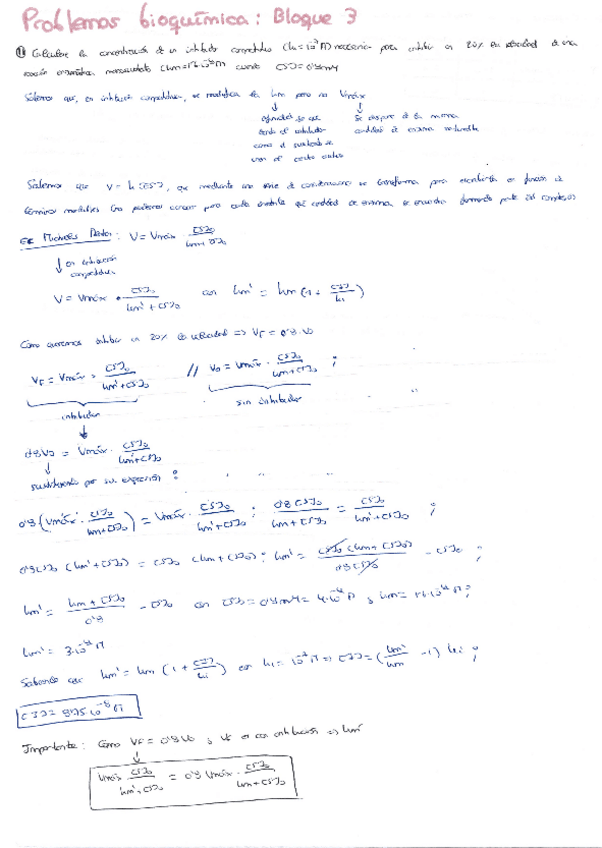 Problemas bioquímica: Bloque 3
Calcular la concentración de un inhibidor competitivo (ki=10⁻⁷M) necesaria para inhibir un 20% la velocidad de una
reacción enzimática cuando [S]=0'4mM
Sabemos que, en inhibición competitiva, se modifica la km pero no Vmáx
se dispone de la misma
cantidad de enzima
tanto el inhibidor
como el sustrato se
unen al centro activo
Sabemos que V = k[ES], que mediante una serie de consideraciones se transforma para escribirla en función de
términos medibles (no podemos conocer para cada cantidad de enzima se encuentra formando parte del complejo)
Ec Michaelis Menten: V = Vmáx · [S]₀ / km+[S]₀
↓ en inhibición
competitiva
V = Vmáx · [S]₀ / km'+[S]₀ con km' = km (1 + [I]/ki)
Como queremos inhibir un 20% la velocidad => VF = 0'8·V0
VF = Vmáx · [S]₀ / km'+[S]₀ // V0 = Vmáx · [S]₀ / km+[S]₀ ;
inhibidor sin inhibidor
0'8V0 = Vmáx · [S]₀ / km'+[S]₀
sustituyendo por su expresión:
0'8 (Vmáx · [S]₀ / km+[S]₀) = Vmáx · [S]₀ / km'+[S]₀ ; 0'8[S]₀ / km+[S]₀ = [S]₀ / km'+[S]₀ ;
0'8[S]₀ (km'+[S]₀) = [S]₀ (km+[S]₀) ; km' = [S]₀ (km+[S]₀) / 0'8[S]₀ - [S]₀ ;
km' = km+[S]₀ / 0'8 - [S]₀ con [S]₀ = 0'4mM = 4·10⁻⁴ M y km = 1'6·10⁻⁴ M ;
km' = 3·10⁻⁴ M
Sabiendo que km' = km (1 + [I]/ki) con ki = 10⁻⁷M => [I] = (km'/km - 1) ki ;
[I] = 8'75·10⁻⁸ M
Importante: Como VF = 0'8V0 y VF es con inhibición => km'
Vmáx [S]₀ / km'+[S]₀ = 0'8 Vmáx · [S]₀ / km+[S]₀